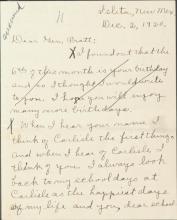 answered
11
Isleta, New Mex.
Dec. 2, 1920.
Dear Gen. Pratt:
X I found out that the
6th of this month is your birthday
and so I thought I would write
to you. I hope you will enjoy
many more birthdays.
X When I hear your name I
think of Carlisle the first thing
and when I hear of Carlisle I
think of you. I always look
back to my school days at
Carlisle as the happiest days
of my life and you, dear school